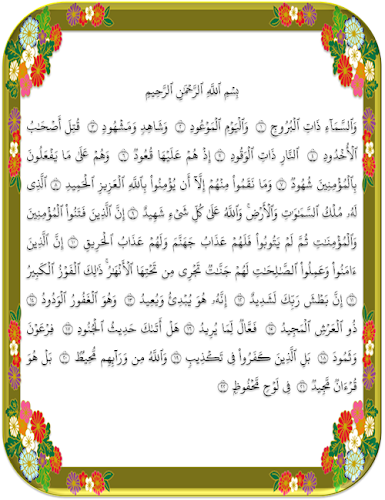 بِسْمِ ٱللَّهِ ٱلرَّحْمَٰنِ ٱلرَّحِيمِ
وَٱلسَّمَآءِ ذَاتِ ٱلْبُرُوجِ ١ وَٱلْيَوْمِ ٱلْمَوْعُودِ ٢ وَشَاهِدٍ وَمَشْهُودٍ ٣ قُتِلَ أَصْحَٰبُ
ٱلْأُخْدُودِ ٤ ٱلنَّارِ ذَاتِ ٱلْوَقُودِ ٥ إِذْ هُمْ عَلَيْهَا قُعُودٌ ٦ وَهُمْ عَلَىٰ مَا يَفْعَلُونَ
بِٱلْمُؤْمِنِينَ شُهُودٌ ٧ وَمَا نَقَمُوا۟ مِنْهُمْ إِلَّآ أَن يُؤْمِنُوا۟ بِٱللَّهِ ٱلْعَزِيزِ ٱلْحَمِيدِ ٨ ٱلَّذِى
لَهُۥ مُلْكُ ٱلسَّمَٰوَٰتِ وَٱلْأَرْضِ ۚ وَٱللَّهُ عَلَىٰ كُلِّ شَىْءٍ شَهِيدٌ ٩ إِنَّ ٱلَّذِينَ فَتَنُوا۟ ٱلْمُؤْمِنِينَ
وَٱلْمُؤْمِنَٰتِ ثُمَّ لَمْ يَتُوبُوا۟ فَلَهُمْ عَذَابُ جَهَنَّمَ وَلَهُمْ عَذَابُ ٱلْحَرِيقِ ١٠ إِنَّ ٱلَّذِينَ
ءَامَنُوا۟ وَعَمِلُوا۟ ٱلصَّٰلِحَٰتِ لَهُمْ جَنَّٰتٌ تَجْرِى مِن تَحْتِهَا ٱلْأَنْهَٰرُ ۚ ذَٰلِكَ ٱلْفَوْزُ ٱلْكَبِيرُ
١١ إِنَّ بَطْشَ رَبِّكَ لَشَدِيدٌ ١٢ إِنَّهُۥ هُوَ يُبْدِئُ وَيُعِيدُ ١٣ وَهُوَ ٱلْغَفُورُ ٱلْوَدُودُ ١٤
ذُو ٱلْعَرْشِ ٱلْمَجِيدُ ١٥ فَعَّالٌ لِّمَا يُرِيدُ ١٦ هَلْ أَتَىٰكَ حَدِيثُ ٱلْجُنُودِ ١٧ فِرْعَوْنَ
وَثَمُودَ ١٨ بَلِ ٱلَّذِينَ كَفَرُوا۟ فِى تَكْذِيبٍ ١٩ وَٱللَّهُ مِن وَرَآئِهِم مُّحِيطٌ ٢٠ بَلْ هُوَ
قُرْءَانٌ مَّجِيدٌ ٢١ فِى لَوْحٍ مَّحْفُوظٍ ٢٢